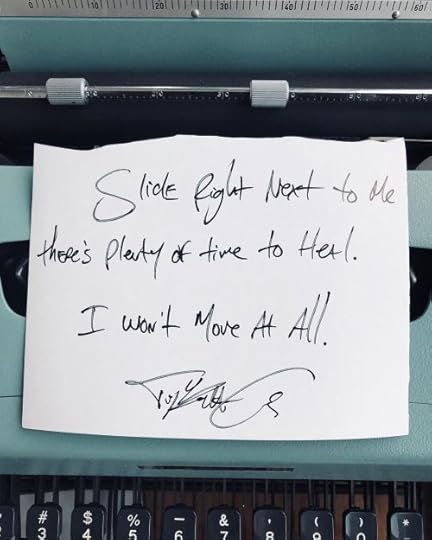 0 10 20 30 40 50 60
Slide Right Next to Me
there's Plenty of time to Heal.
I won't Move At All.
# $ % _ & ' ( ) *
3 4 5 6 7 8 9 0 -